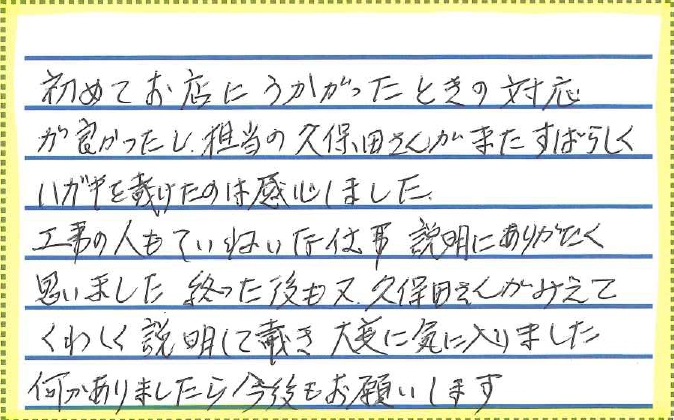 初めてお店にうかがったときの対応
が良かったし、担当の久保田さんがまたすばらしく
ハガキを戴けたのは感心しました。
工事の人もていねいな仕事 説明にありがたく
思いました 終った後も又、久保田さんがみえて
くわしく説明して戴き 大変に気に入りました
何かありましたら今後もお願いします